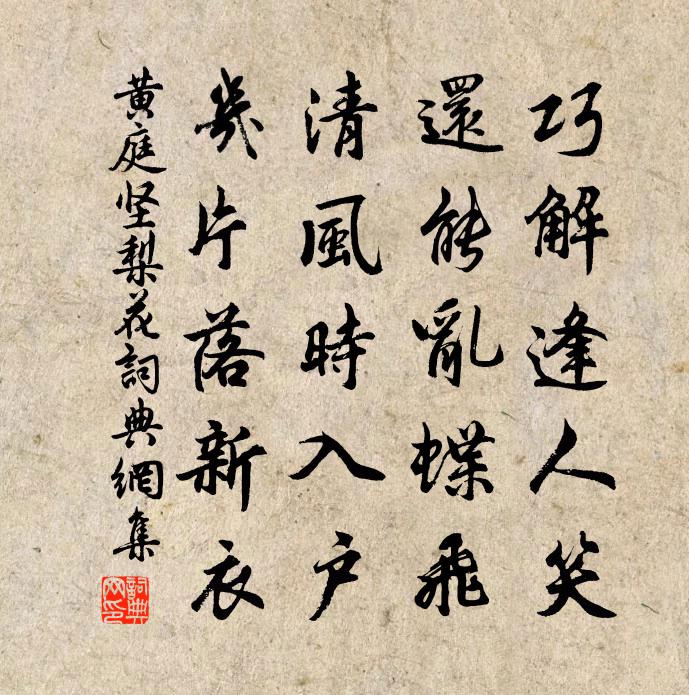 巧解逢人笑
還能亂蝶飛
清風時入戶
幾片落新衣
黄庭坚梨花詞典網集
詞典網印